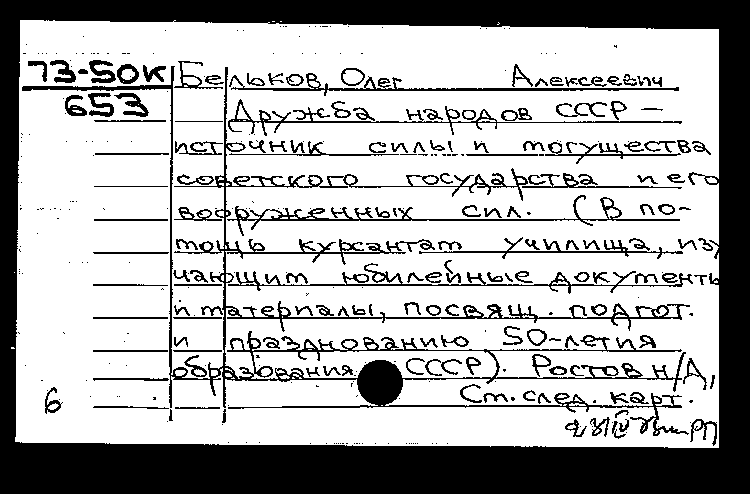 73-50К Бельков, Олег Алексеевич
653 Дружба народов СССР –
источник силы и могущества
советского государства и его
вооруженных сил. (В по-
мощь курсантам училища, изу
чающим юбилейные документы
и материалы, посвящ. подгот.
и празднованию 50-летия
образования СССР). Ростов н/Д,
6 Ст. след. карт.